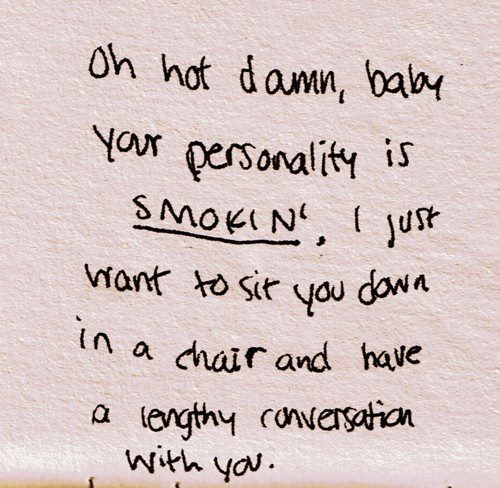 Oh hot damn, baby
your personality is
SMOKIN'. I just
want to sit you down
in a chair and have
a lengthy conversation
with you.